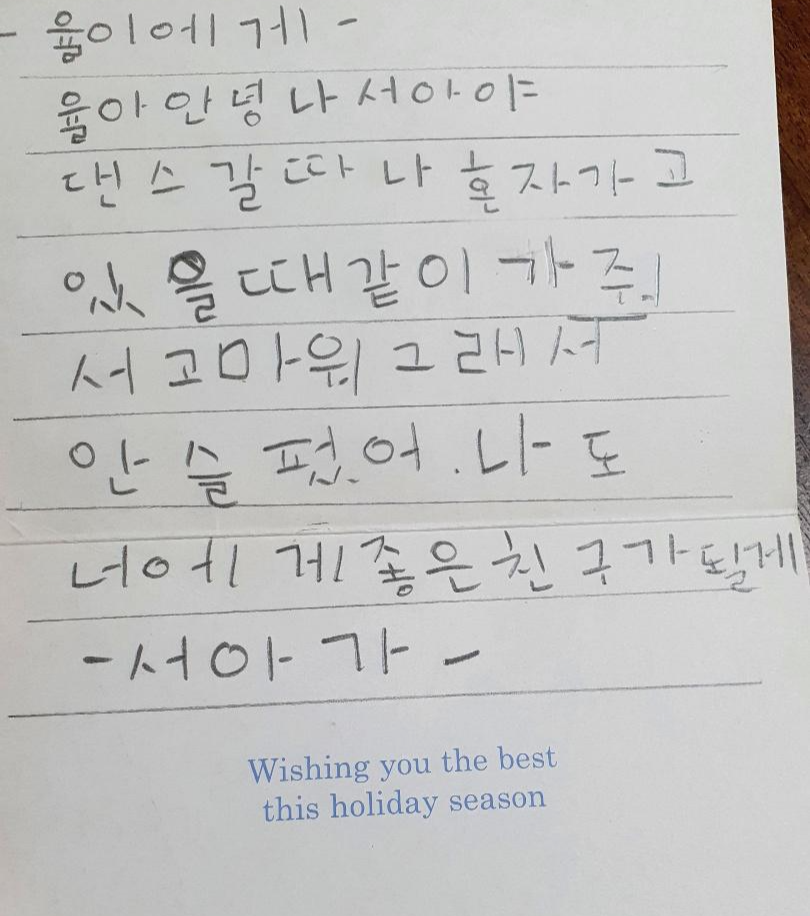 - 윰이에게 -
율아 안녕 나 서아야
댄스 갈 따 나 혼자가고
있을 때 같이 가 줘
서 고마워 그래서
안 슬펐어. 나도
너에게 좋은 친구가 될게
- 서아가 -
Wishing you the best
this holiday season